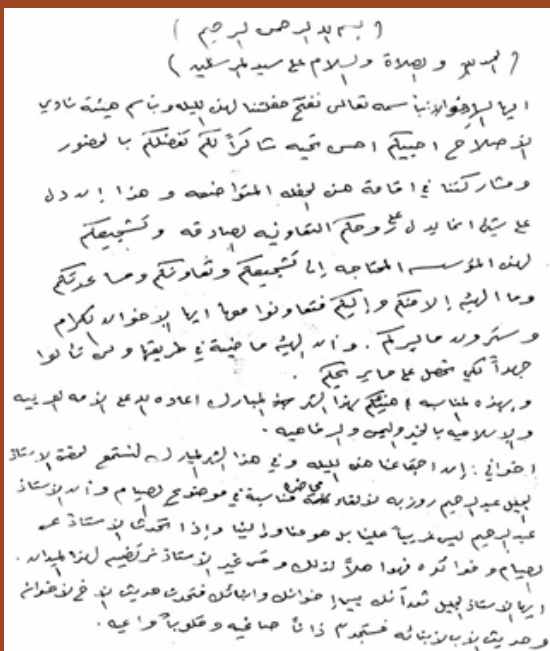 ( بسم الله الرحمن الرحيم )
( الحمد لله والصلاة والسلام على سيد المرسلين )
ايها الإخوان باسمه تعالى نفتتح حفلتنا لهذه الليلة وباسم هيئة نادي
الإصلاح احييكم احسن تحية شاكراً لكم تفضلكم بالحضور
ومشاركتنا في اقامة هذه الحفلة المتواضعة وهذا إن دل
على شيء انما يدل على روحكم التعاونية الصادقة وتشجيعكم
لهذه المؤسسة المحتاجة إلى تشجيعكم وتعاونكم ومساعدتكم
وما الهيئة إلا منكم وإليكم فتعاونوا معها ايها الإخوان
وسترون ما يسركم . وان الهيئة ماضية في طريقها ولن تألوا
جهداً لكي تحصل على ما يرضيكم .
وبهذه المناسبة اهنيكم بهذا الشهر المبارك اعاده الله على الأمة العربية
والإسلامية بالخير واليمن والرفاهية .
اخواني : إن اجتماعنا هذه الليلة وفي هذا الشهر المبارك لنستمع لحضرة الاستاذ
الجليل عبدالرحيم روزبه لإلقاء محاضرة مناسبة في موضوع الصيام وان الاستاذ
عبدالرحيم ليس غريباً علينا بل هو منا وإلينا وإذا تحدث الاستاذ عن
الصيام وفوائده فهو اهلاً لذلك ومن غير الاستاذ نرتضيه لهذا الميدان .
ايها الاستاذ الجليل انك بين إخوانك وابنائك فتحدث حديث الأخ لإخوانه
وحديث الأب لأبنائه فستجد آذاناً صاغية وقلوباً واعية .